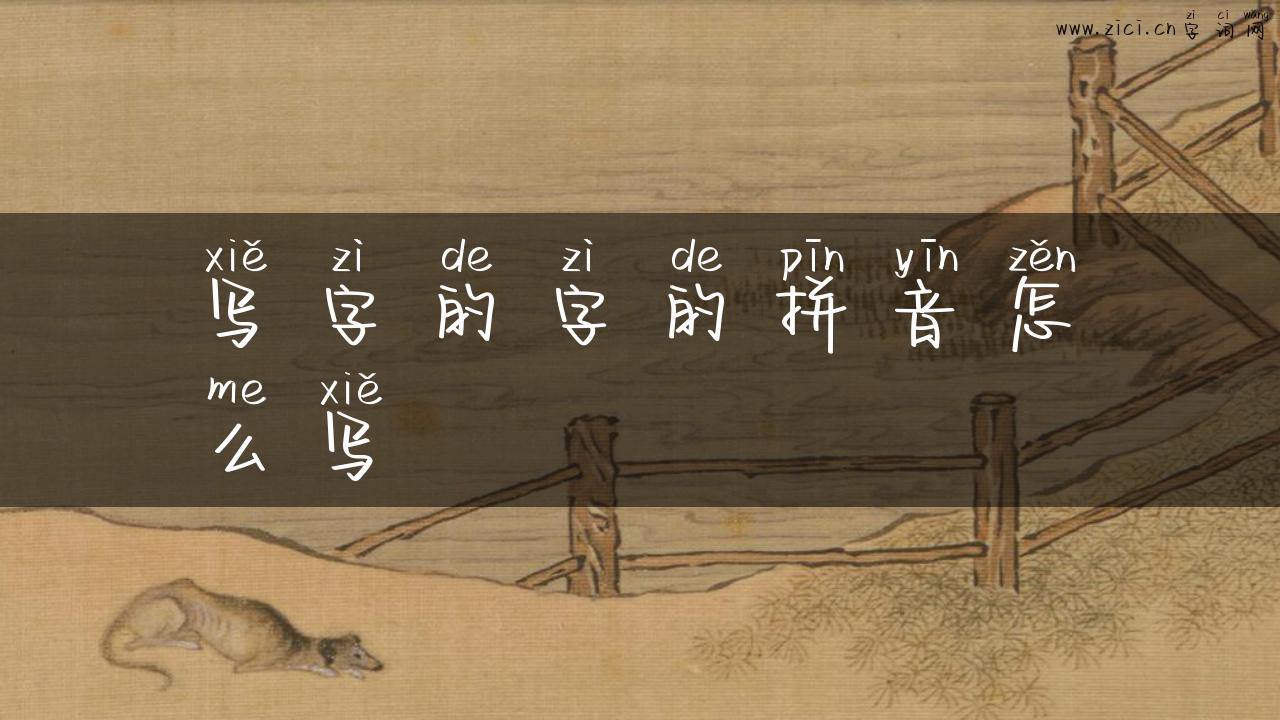 zi ci wang
www.zici.cn 字 词 网
xiě zì de zì de pīn yīn zěn
写 字 的 字 的 拼 音 怎
me xiě
么 写